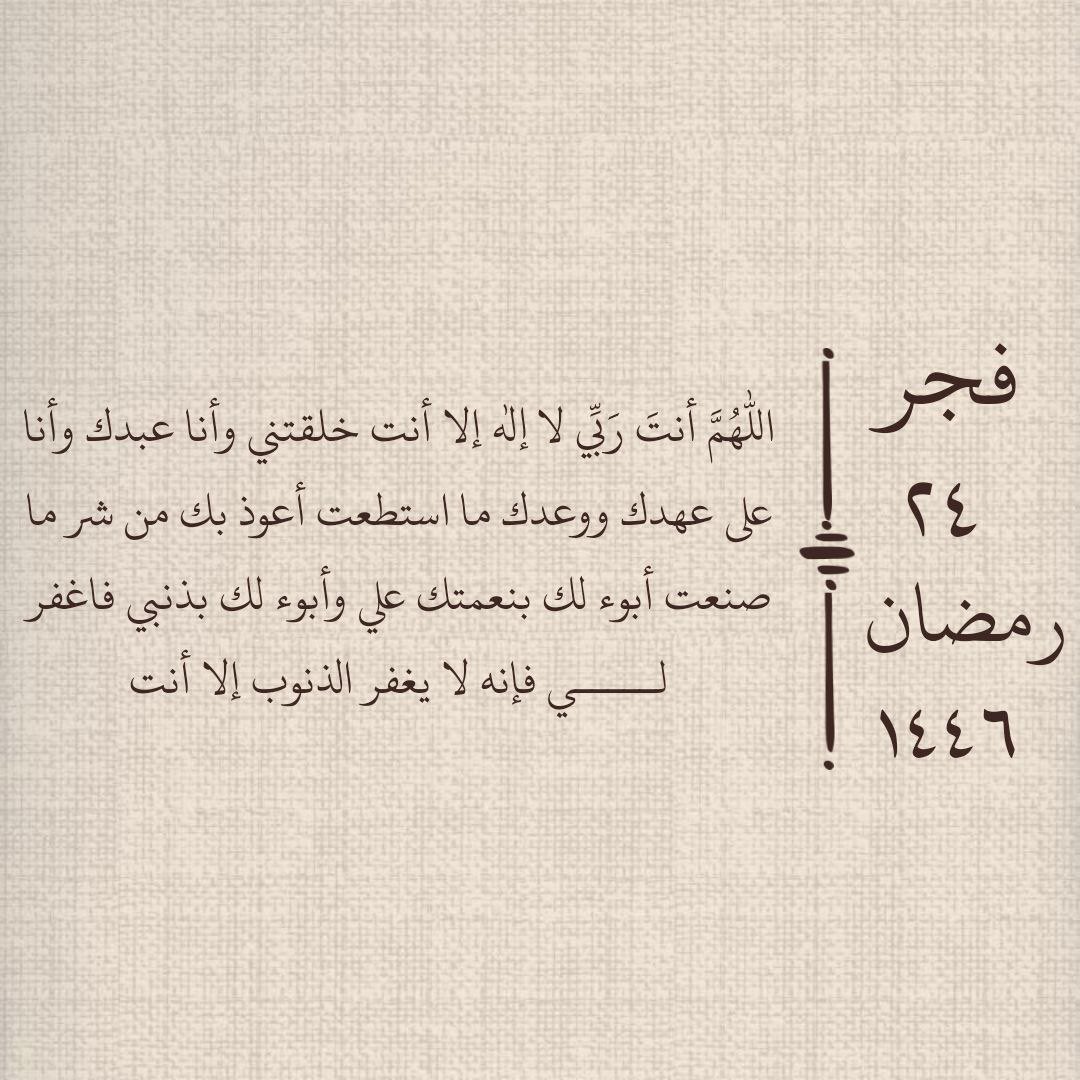 فجر
٢٤
رمضان
١٤٤٦
اللّهُمَّ أنتَ رَبِّي لا إلٰه إلا أنت خلقتني وأنا عبدك وأنا
على عهدك ووعدك ما استطعت أعوذ بك من شر ما
صنعت أبوء لك بنعمتك علي وأبوء لك بذنبي فاغفر
لـــــــي فإنه لا يغفر الذنوب إلا أنت